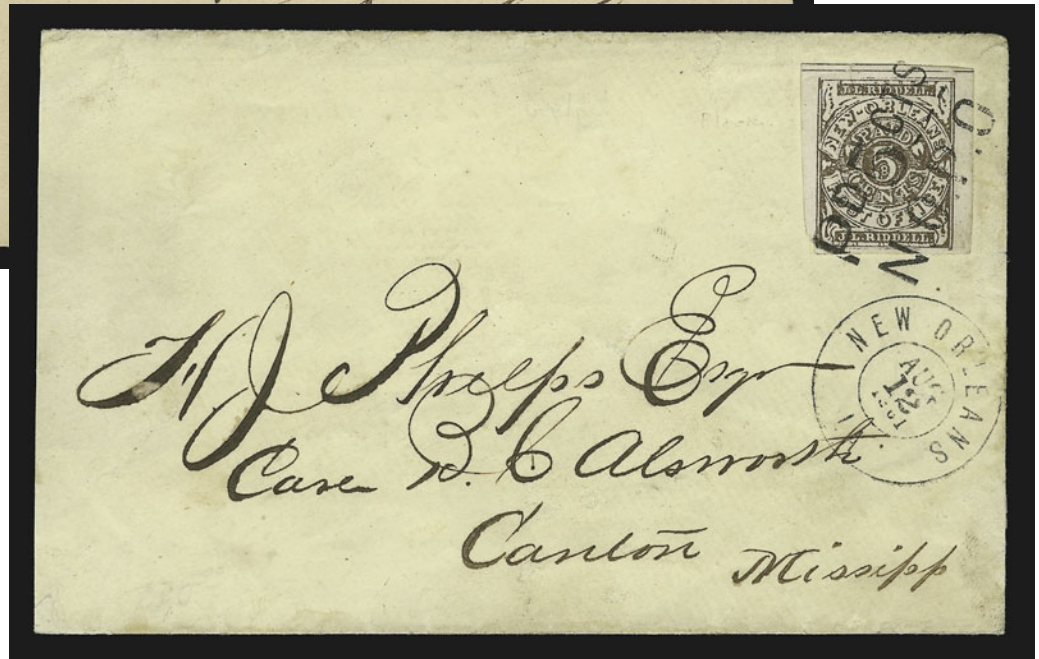 J.L. RIDDELL
NEW-ORLEANS
PAID
5
CENTS
POST OFFICE
J.L. RIDDELL
NEW ORLEANS
AUG
12
1861
J Phelps Esqr
Care B. C Alsworth
Canton Missipp